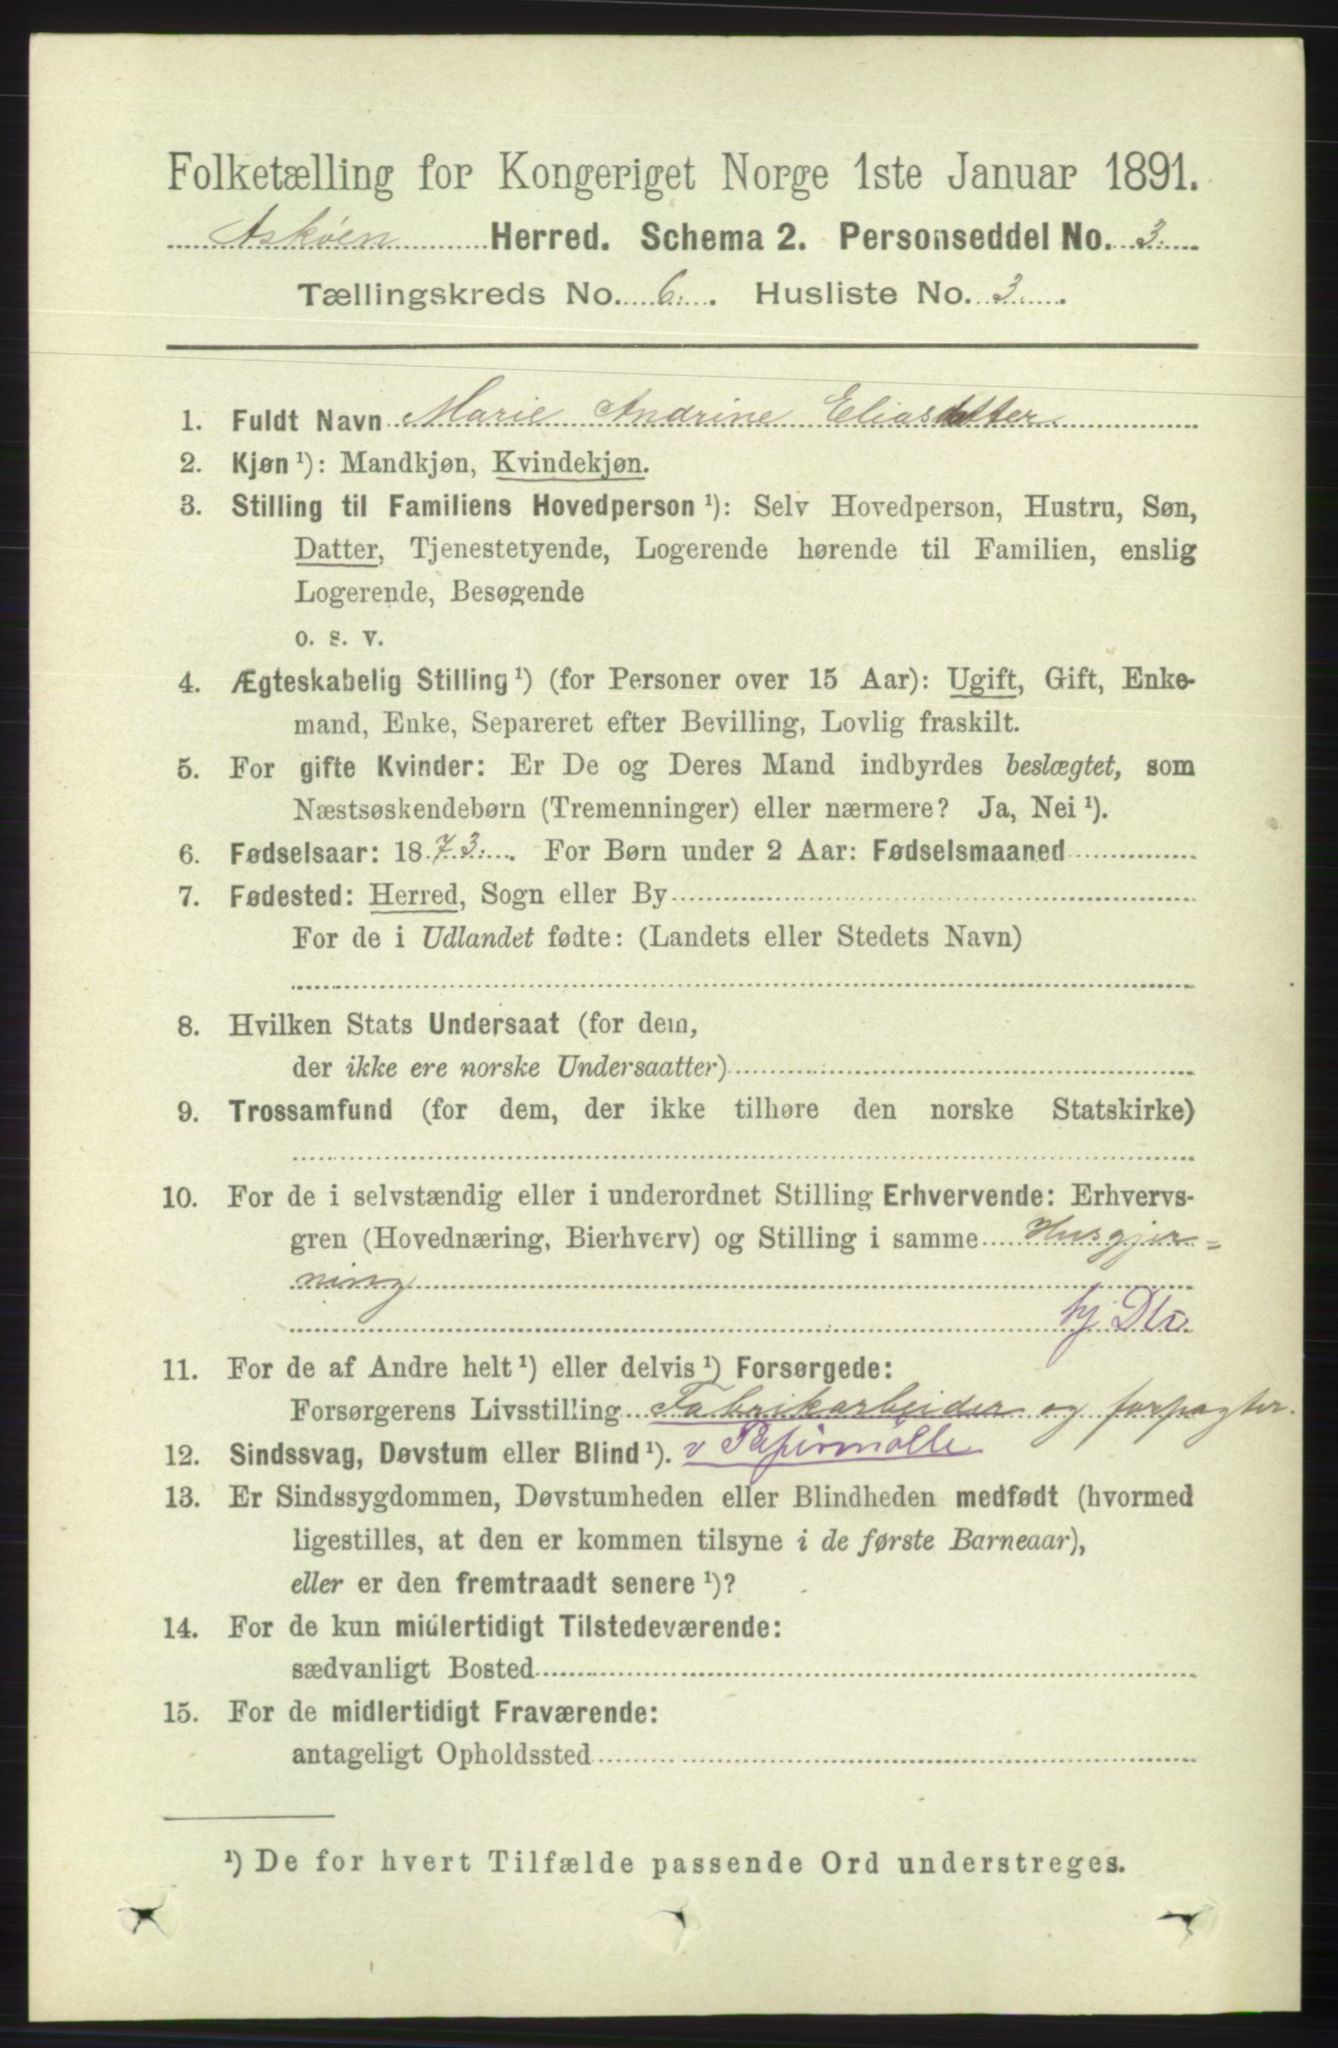 Folketælling for Kongeriget Norge 1ste Januar 1891.
Askøen Herred. Schema 2. Personseddel No. 3.
Tællingskreds No. 6. Husliste No. 3.
1. Fuldt Navn Marie Andrine Eliasdatter
2. Kjøn ¹): Mandkjøn, Kvindekjøn.
3. Stilling til Familiens Hovedperson ¹): Selv Hovedperson, Hustru, Søn,
Datter, Tjenestetyende, Logerende hørende til Familien, enslig
Logerende, Besøgende
o. s. v.
4. Ægteskabelig Stilling ¹) (for Personer over 15 Aar): Ugift, Gift, Enke-
mand, Enke, Separeret efter Bevilling, Lovlig fraskilt.
5. For gifte Kvinder: Er De og Deres Mand indbyrdes beslægtet, som
Næstsøskendebørn (Tremenninger) eller nærmere? Ja, Nei ¹).
6. Fødselsaar: 1873. For Børn under 2 Aar: Fødselsmaaned
7. Fødested: Herred, Sogn eller By
For de i Udlandet fødte: (Landets eller Stedets Navn)
8. Hvilken Stats Undersaat (for dem,
der ikke ere norske Undersaatter)
9. Trossamfund (for dem, der ikke tilhøre den norske Statskirke)
10. For de i selvstændig eller i underordnet Stilling Erhvervende: Erhvervs-
gren (Hovednæring, Bierhverv) og Stilling i samme Husgjer=
ning
hj Dtr.
11. For de af Andre helt ¹) eller delvis ¹) Forsørgede:
Forsørgerens Livsstilling Fabrikarbeider og forpagter.
12. Sindssvag, Døvstum eller Blind ¹). v Papirmølle
13. Er Sindssygdommen, Døvstumheden eller Blindheden medfødt (hvormed
ligestilles, at den er kommen tilsyne i de første Barneaar),
eller er den fremtraadt senere ¹)?
14. For de kun midlertidigt Tilstedeværende:
sædvanligt Bosted
15. For de midlertidigt Fraværende:
antageligt Opholdssted
¹) De for hvert Tilfælde passende Ord understreges.